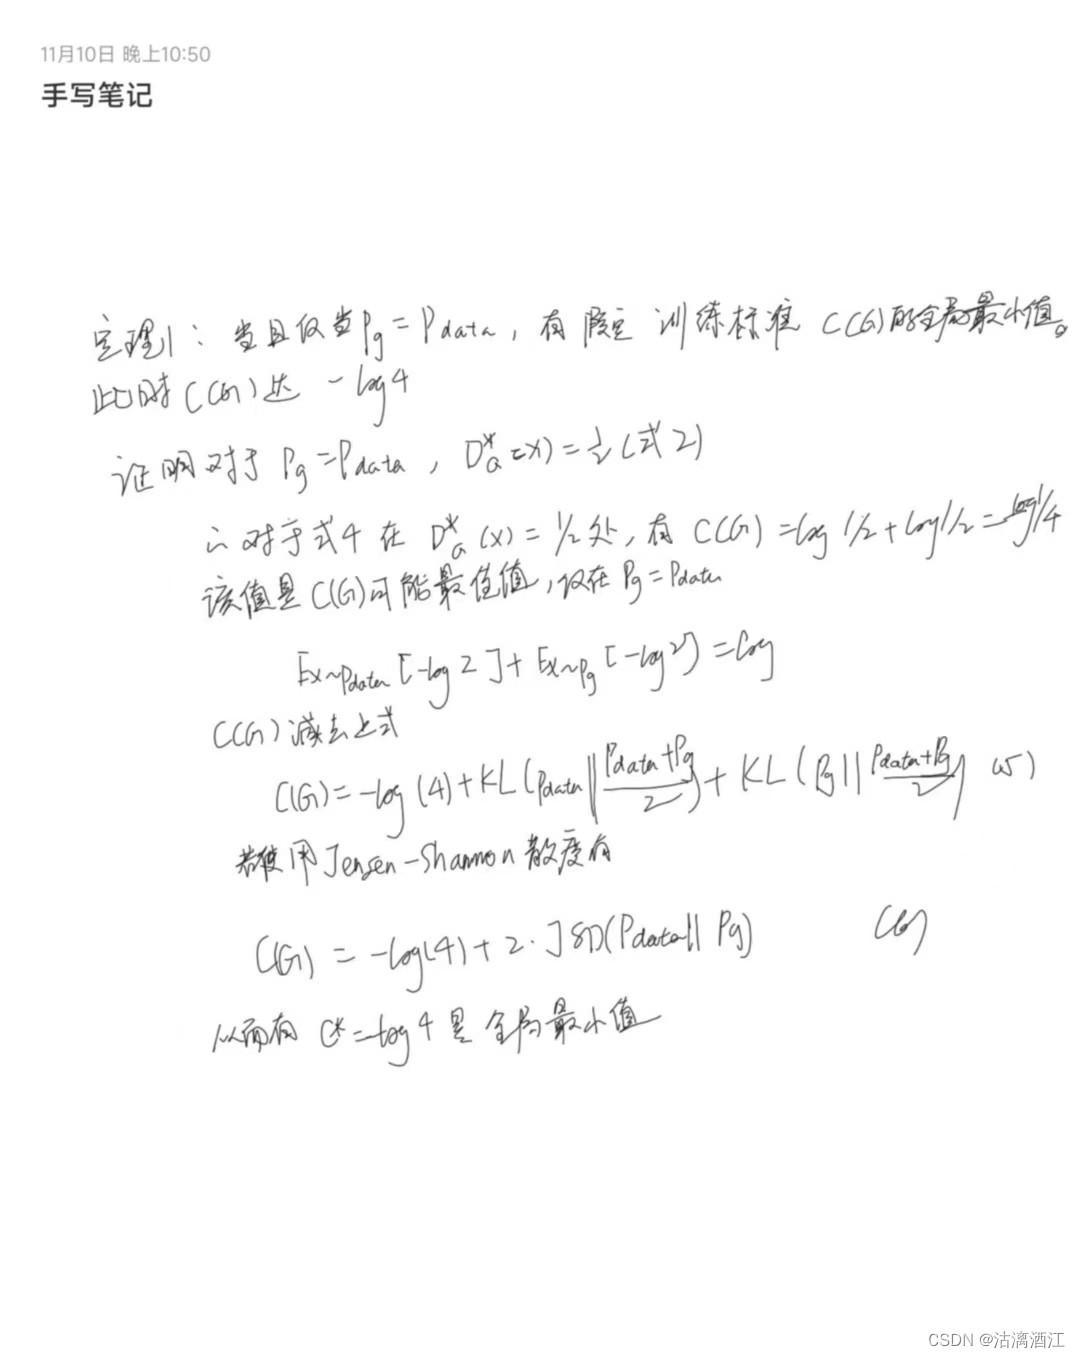 11月10日 晚上10:50
手写笔记
定理1：当且仅当Pg=Pdata，有假定 训练标准 C(G)的全局最小值。
此时C(G)达 -log4
证明对于 Pg=Pdata，D*G(x)=1/2(式2)
∴对于式4 在 D*G(x)=1/2处，有 C(G)=log1/2+log1/2=log1/4
该值是C(G)可能最佳值，仅在Pg=Pdata
Ex~Pdata[-log2]+Ex~Pg[-log2]=log
C(G)减去上式
C(G)=-log(4)+KL(Pdata||Pdata+Pg/2)+KL(Pg||Pdata+Pg/2) (5)
若使用Jensen-Shannon散度有
C(G)=-log(4)+2·JSD(Pdata||Pg)
从而有 C*=-log4是全局最小值
CSDN @沽漓酒江